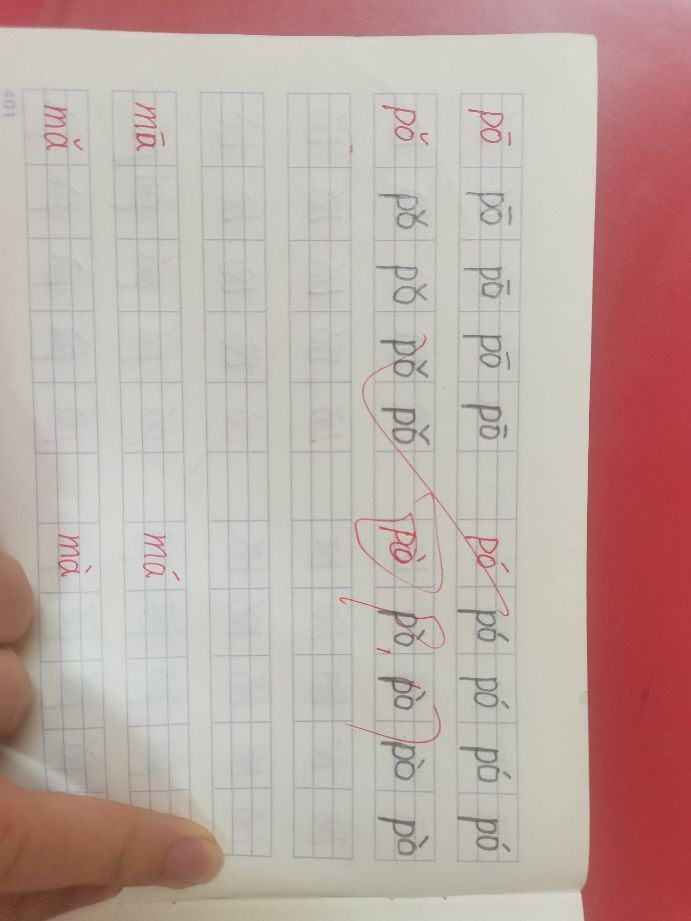 pō pō pō pō pō pó pó pó pó pó
pǒ pǒ pǒ pǒ pǒ pò pò pò pò pò
mā má
mǎ mà